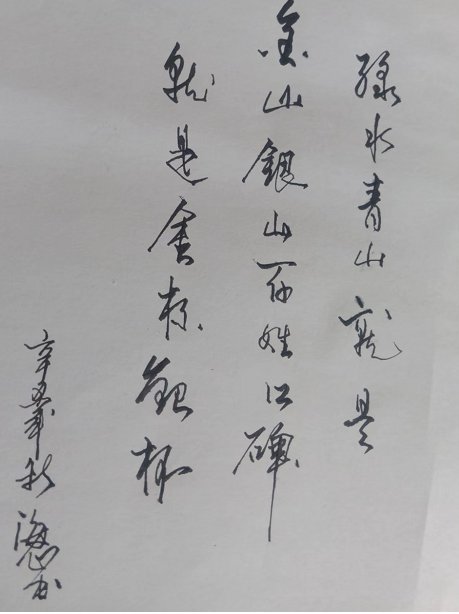 绿水青山就是
金山銀山百姓口碑
就是金杯銀杯
辛丑年秋 海书